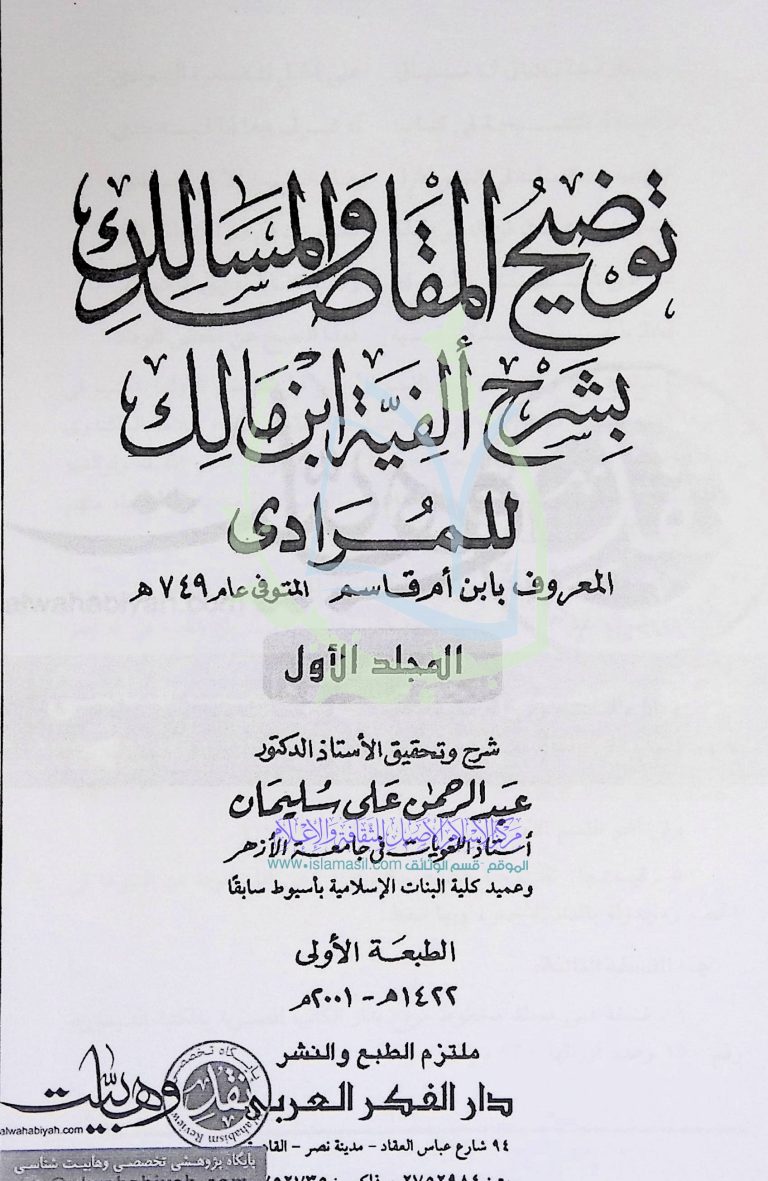 توضيح المقاصد والمسالك
بشرح ألفية ابن مالك
للمرادى
المعروف بابن أم قاسم المتوفى عام ٧٤٩ هـ
المجلد الأول
شرح وتحقيق الأستاذ الدكتور
عبد الرحمن على سليمان
مركز الإسلام الأصيل للثقافة والإعلام
أستاذ اللغويات فى جامعة الأزهر
الموقع -قسم الوثائق www.islamasil.com
وعميد كلية البنات الإسلامية بأسيوط سابقًا
الطبعة الأولى
١٤٢٢هـ - ٢٠٠١م
ملتزم الطبع والنشر
دار الفكر العربى
٩٤ شارع عباس العقاد - مدينة نصر -
پایگاه تخصصی
نقد وهابیت
Wahabism Review
alwahabiyah.com
پایگاه پژوهشی تخصصی وهابیت شناسی